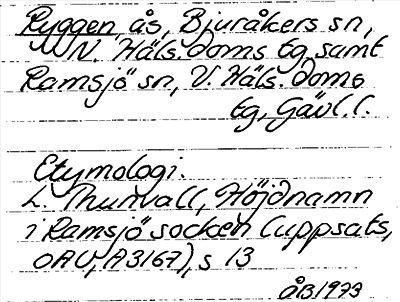 Ryggen, ås, Bjuråkers sn,
N. Häls. doms tg, samt
Ramsjö sn, V. Häls. doms
tg, Gävl. l.
Etymologi.
L. Thunvall, Höjdnamn
i Ramsjö socken (uppsats,
OAU, A3167), s 13
ÅB 1973